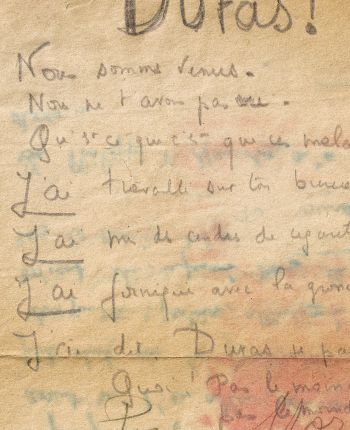 Duras!
Nous sommes venus.
Nous ne t'avons pas vue.
Qu'est-ce que c'est que ces
J'ai travaillé sur ton bureau
J'ai mis des cendres de
J'ai forniqué avec la
J'ai dit Duras
Quoi! Pas le
pas le